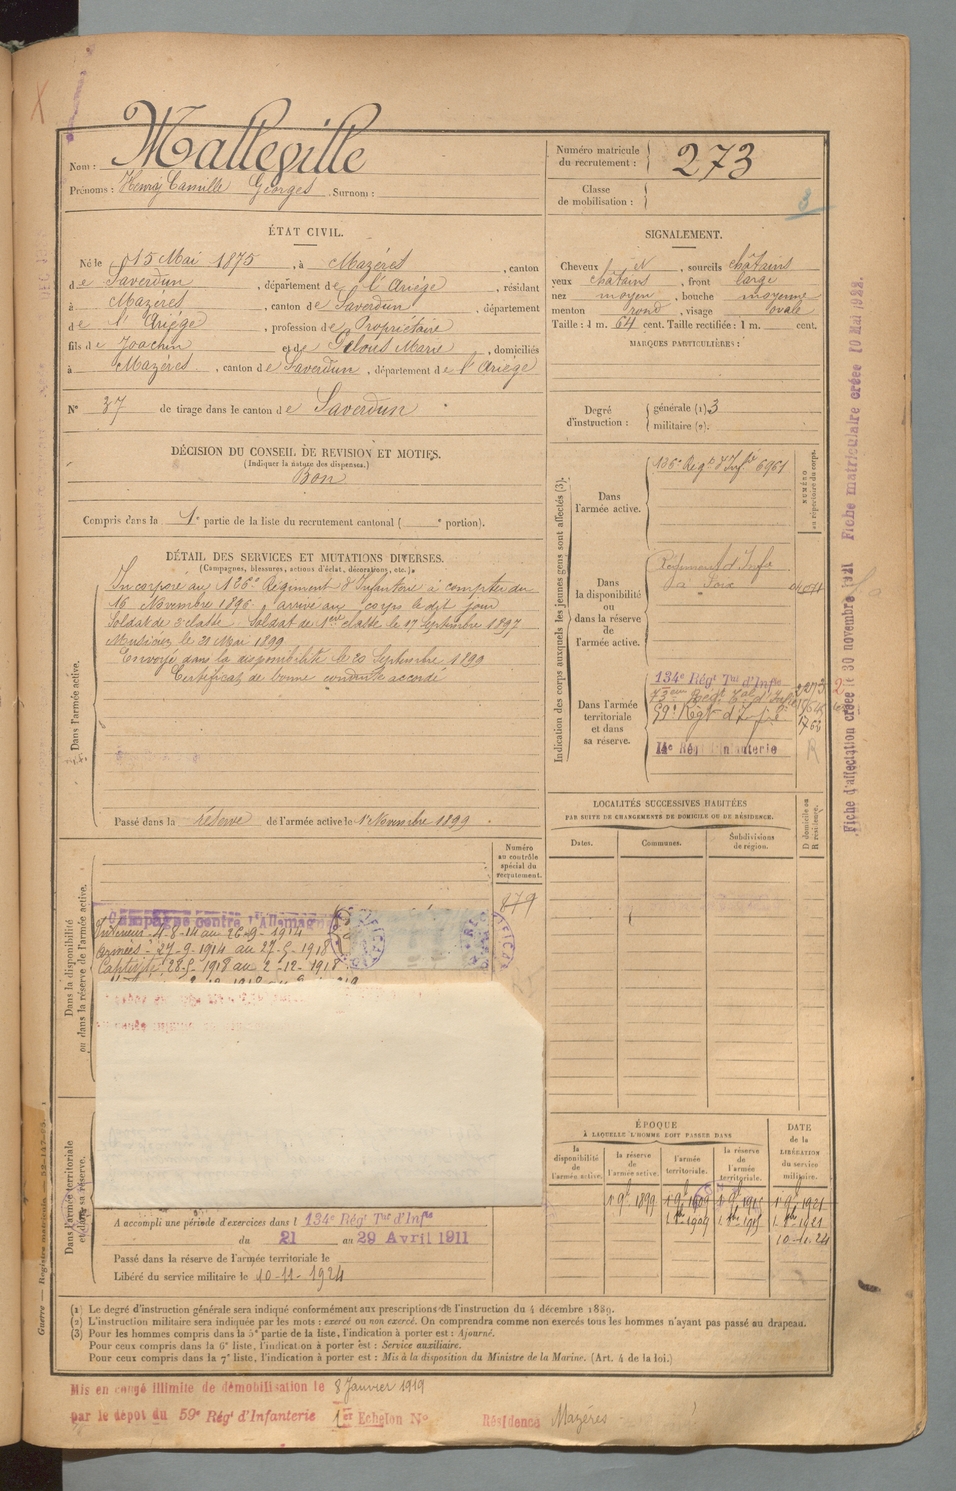 Nom : Malleville
Prénoms : Henry Camille Georges Surnom :
Numéro matricule du recrutement : 273
Classe de mobilisation :
8
ÉTAT CIVIL.
Né le 15 Mai 1875, à Mazéres, canton
de Saverdun, département de l'Ariége, résidant
à Mazeres, canton de Saverdun, département
de l'Ariége, profession de Propriétaire
fils de Joachin et de Marie, domiciliés
à Mazéres, canton de Saverdun, département de l'Ariége
N° 37 de tirage dans le canton de Saverdun
SIGNALEMENT.
Cheveux et, sourcils châtains
yeux châtains, front large
nez moyen, bouche moyenne
menton rond, visage ovale
Taille : 1 m. 64 cent. Taille rectifiée : 1 m. cent.
MARQUES PARTICULIÈRES :
Degré d'instruction : générale (1) 3
militaire (2).
DÉCISION DU CONSEIL DE REVISION ET MOTIFS.
(Indiquer la nature des dispenses.)
Bon
Compris dans la 1e partie de la liste du recrutement cantonal ( e portion).
DÉTAIL DES SERVICES ET MUTATIONS DIVERSES.
(Campagnes, blessures, actions d'éclat, décorations, etc.)
Dans l'armée active.
Incorporé au 126e Régiment d'Infanterie à compter du
16 Novembre 1896, arrivé au corps le dit jour
Soldat de 2e classe Soldat de 1ère classe le 17 Septembre 1897
Musicien le 21 Mai 1899
Envoyé dans la disponibilité le 20 Septembre 1899
Certificat de bonne conduite accordé
Passé dans la réserve de l'armée active le 1 Novembre 1899.
Indication des corps auxquels les jeunes gens sont affectés (3).
NUMÉRO au répertoire du corps.
Dans l'armée active.
Regt d'Infie 6961
Dans la disponibilité ou dans la réserve de l'armée active.
Régiment d'Infie
de Foix
Dans l'armée territoriale et dans sa réserve.
134e Régt Tal d'Infie
59e Régt d'Infie
14e Régt d'Infanterie
R
LOCALITÉS SUCCESSIVES HABITÉES
PAR SUITE DE CHANGEMENTS DE DOMICILE OU DE RÉSIDENCE.
Dates. Communes. Subdivisions de région. D domicile ou R résidence.
Dans la disponibilité ou dans la réserve de l'armée active.
Numéro au contrôle spécial du recrutement.
679
Campagne contre l'Allemagne
Intérieur 4-8-14 au 26-9-1914
Armées : 27-9-1914 au 27-5-1918
Captivité : 28-5-1918 au 2-12-1918
Dans l'armée territoriale et dans sa réserve.
A accompli une période d'exercices dans l 134e Régt Tal d'Infie
du 21 au 29 Avril 1911
Passé dans la réserve de l'armée territoriale le
Libéré du service militaire le 10-11-1924
ÉPOQUE
À LAQUELLE L'HOMME DOIT PASSER DANS
la disponibilité de l'armée active. la réserve de l'armée active. l'armée territoriale. la réserve de l'armée territoriale.
DATE de la LIBÉRATION du service militaire.
1 9bre 1899 1 9bre 1909 1 9bre 1915 1 9bre 1921
10-11-24
(1) Le degré d'instruction générale sera indiqué conformément aux prescriptions de l'instruction du 4 décembre 1889.
(2) L'instruction militaire sera indiquée par les mots : exercé ou non exercé. On comprendra comme non exercés tous les hommes n'ayant pas passé au drapeau.
(3) Pour les hommes compris dans la 5e partie de la liste, l'indication à porter est : Ajourné.
Pour ceux compris dans la 6e liste, l'indication à porter est : Service auxiliaire.
Pour ceux compris dans la 7e liste, l'indication à porter est : Mis à la disposition du Ministre de la Marine. (Art. 4 de la loi.)
Mis en congé illimité de démobilisation le 8 Janvier 1919
par le dépôt du 59e Régt d'Infanterie 1er Echelon N° Résidence Mazéres
Fiche d'affectation créée le 30 novembre 1921 Fiche matriculaire créée 10 Mai 1922.